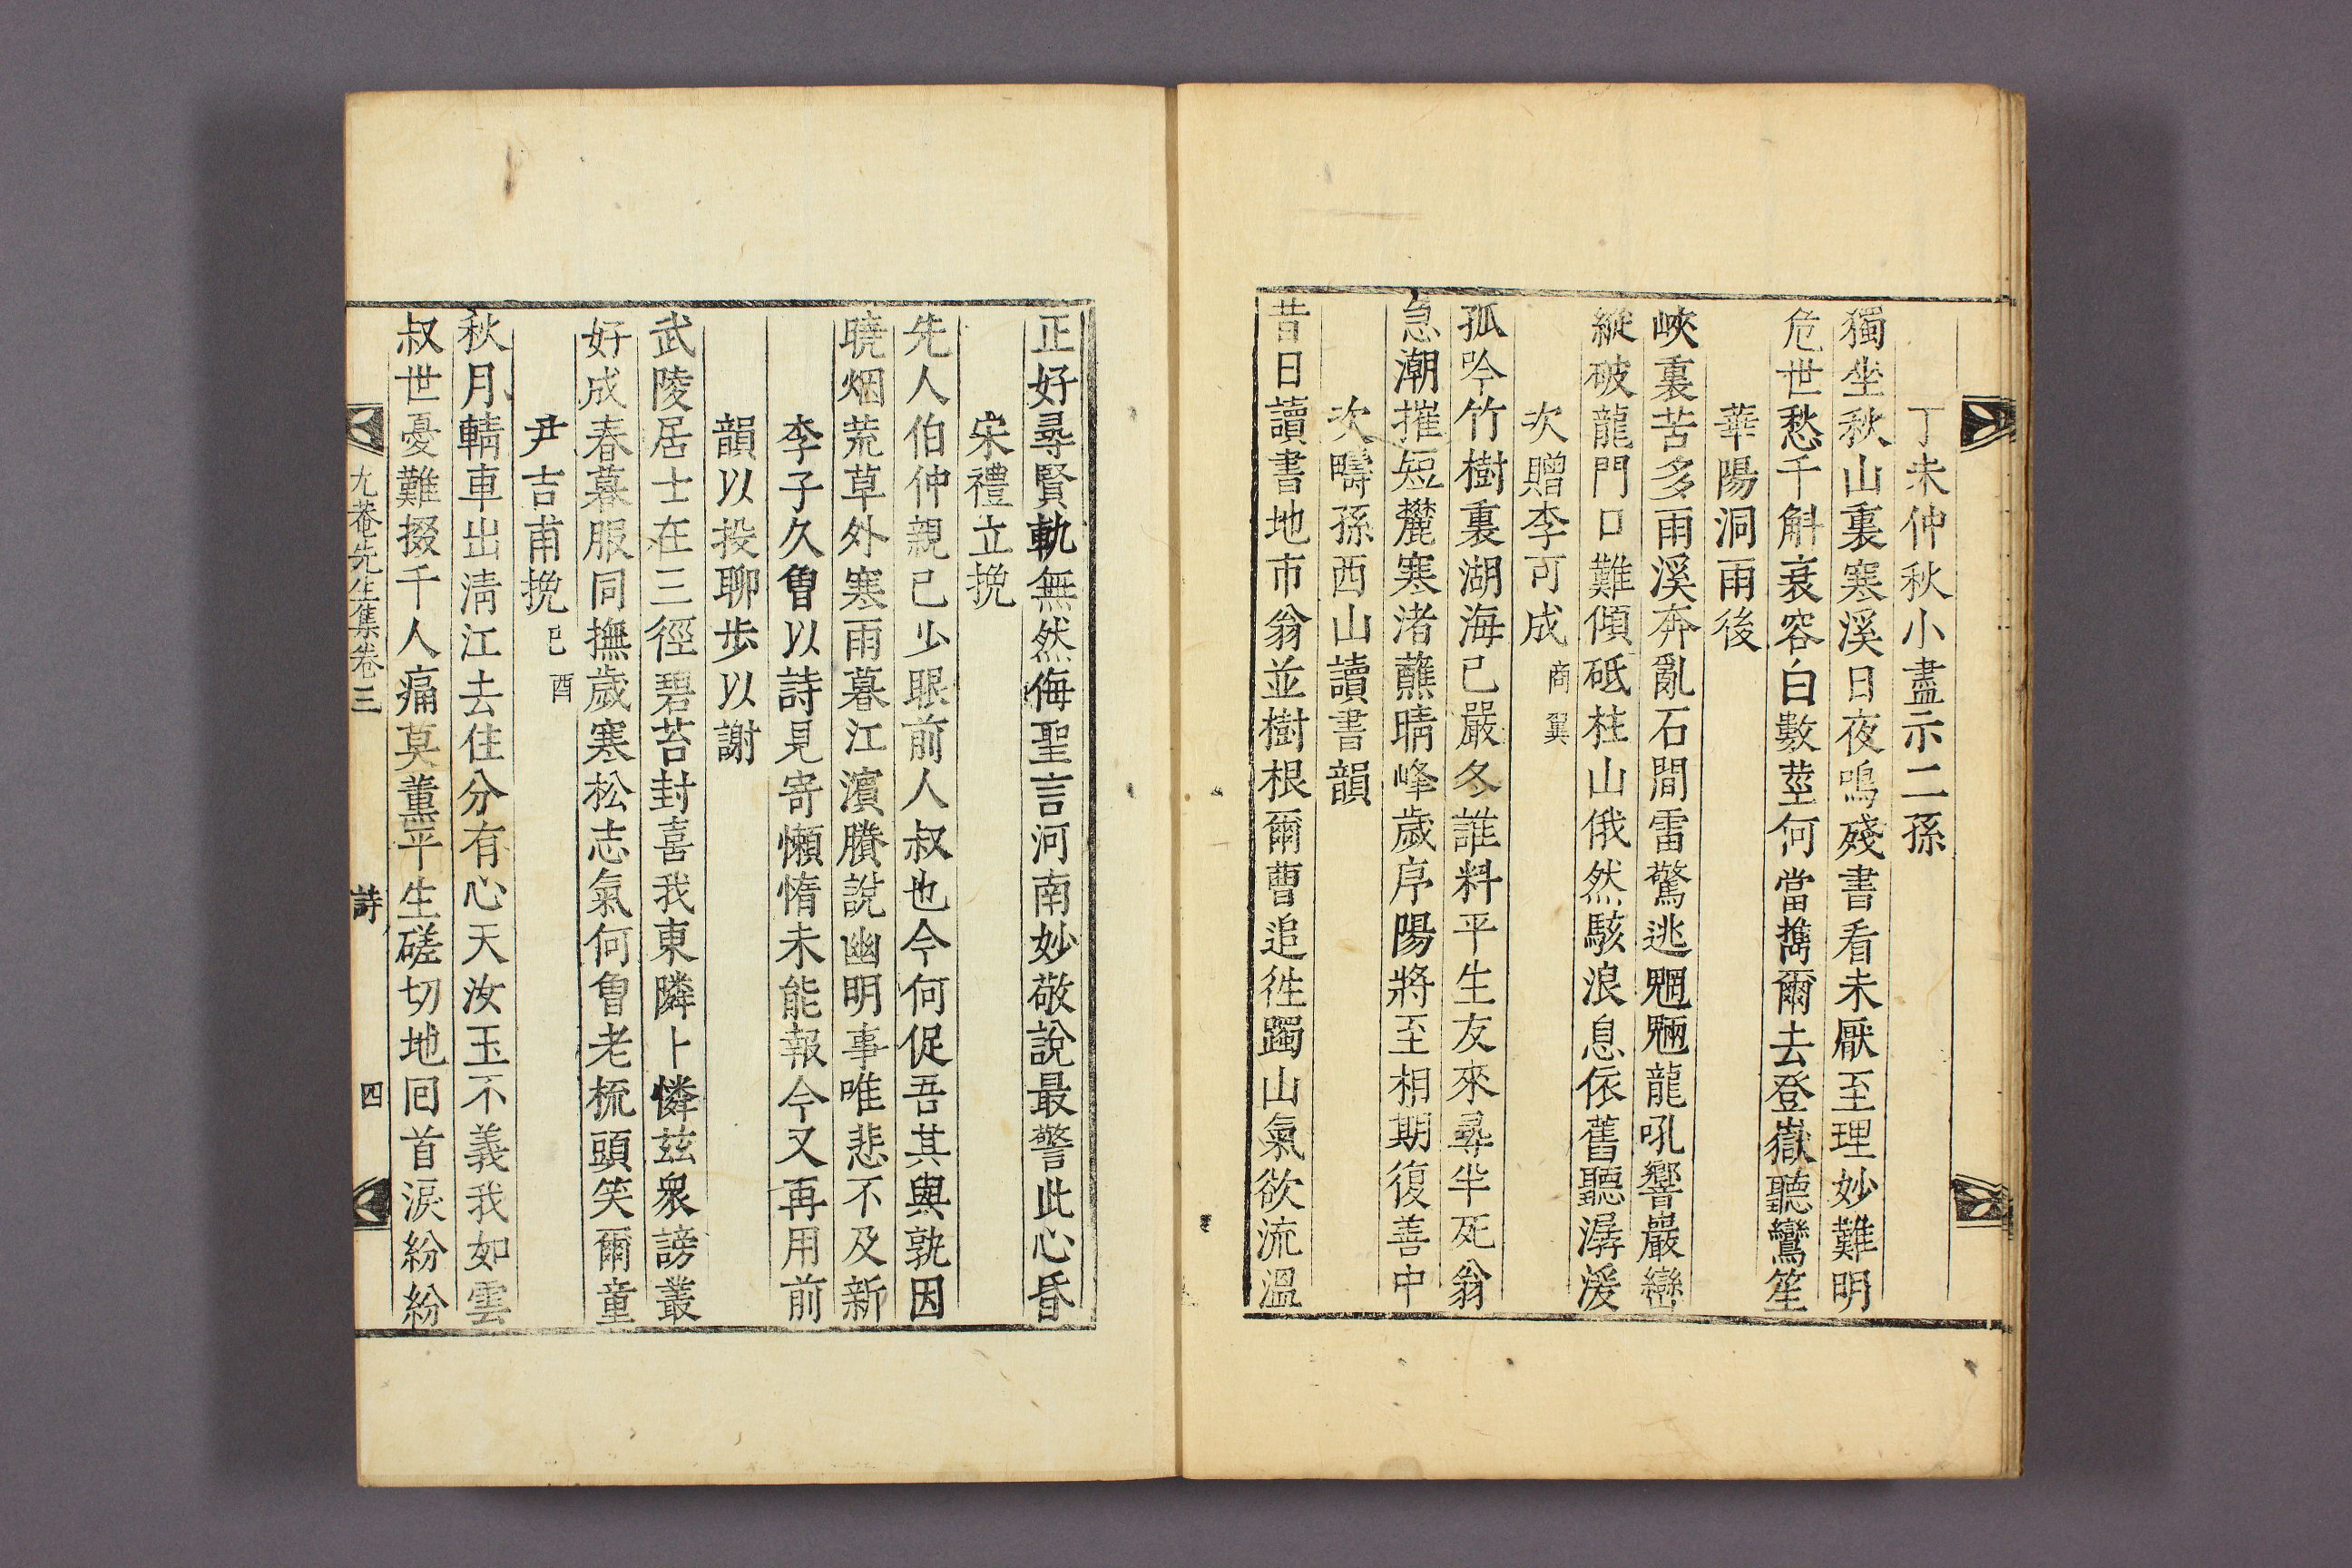 丁未仲秋小盡示二孫
獨坐秋山裏寒溪日夜鳴殘書看未厭至理妙難明
危世愁千斛衰容白數莖何當携爾去登嶽聽鸞笙
華陽洞雨後
峽裏苦多雨溪奔亂石間雷驚逃魍魎龍吼響巖巒
縱破龍門口難傾砥柱山俄然駭浪息依舊聽潺湲
次贈李可成商翼
孤吟竹樹裏湖海已嚴冬誰料平生友來尋半死翁
急潮摧短麓寒渚蘸晴峰歲序陽將至相期復善中
次疇孫西山讀書韻
昔日讀書地市翁並樹根爾曹追往躅山氣欲流溫
正好尋賢軌無然侮聖言河南妙敬說最警此心昏
宋禮立挽
先人伯仲親已少眼前人叔也今何促吾其與孰因
曉烟荒草外寒雨暮江濱賸說幽明事唯悲不及新
李子久曾以詩見寄懶惰未能報今又再用前
韻以投聊步以謝
武陵居士在三徑碧苔封喜我東隣卜憐玆衆謗叢
好成春暮服同撫歲寒松志氣何曾老梳頭笑爾童
尹吉甫挽己酉
秋月輤車出淸江去住分有心天汝玉不義我如雲
叔世憂難掇千人痛莫薰平生磋切地回首淚紛紛
尤菴先生集卷三 詩 四